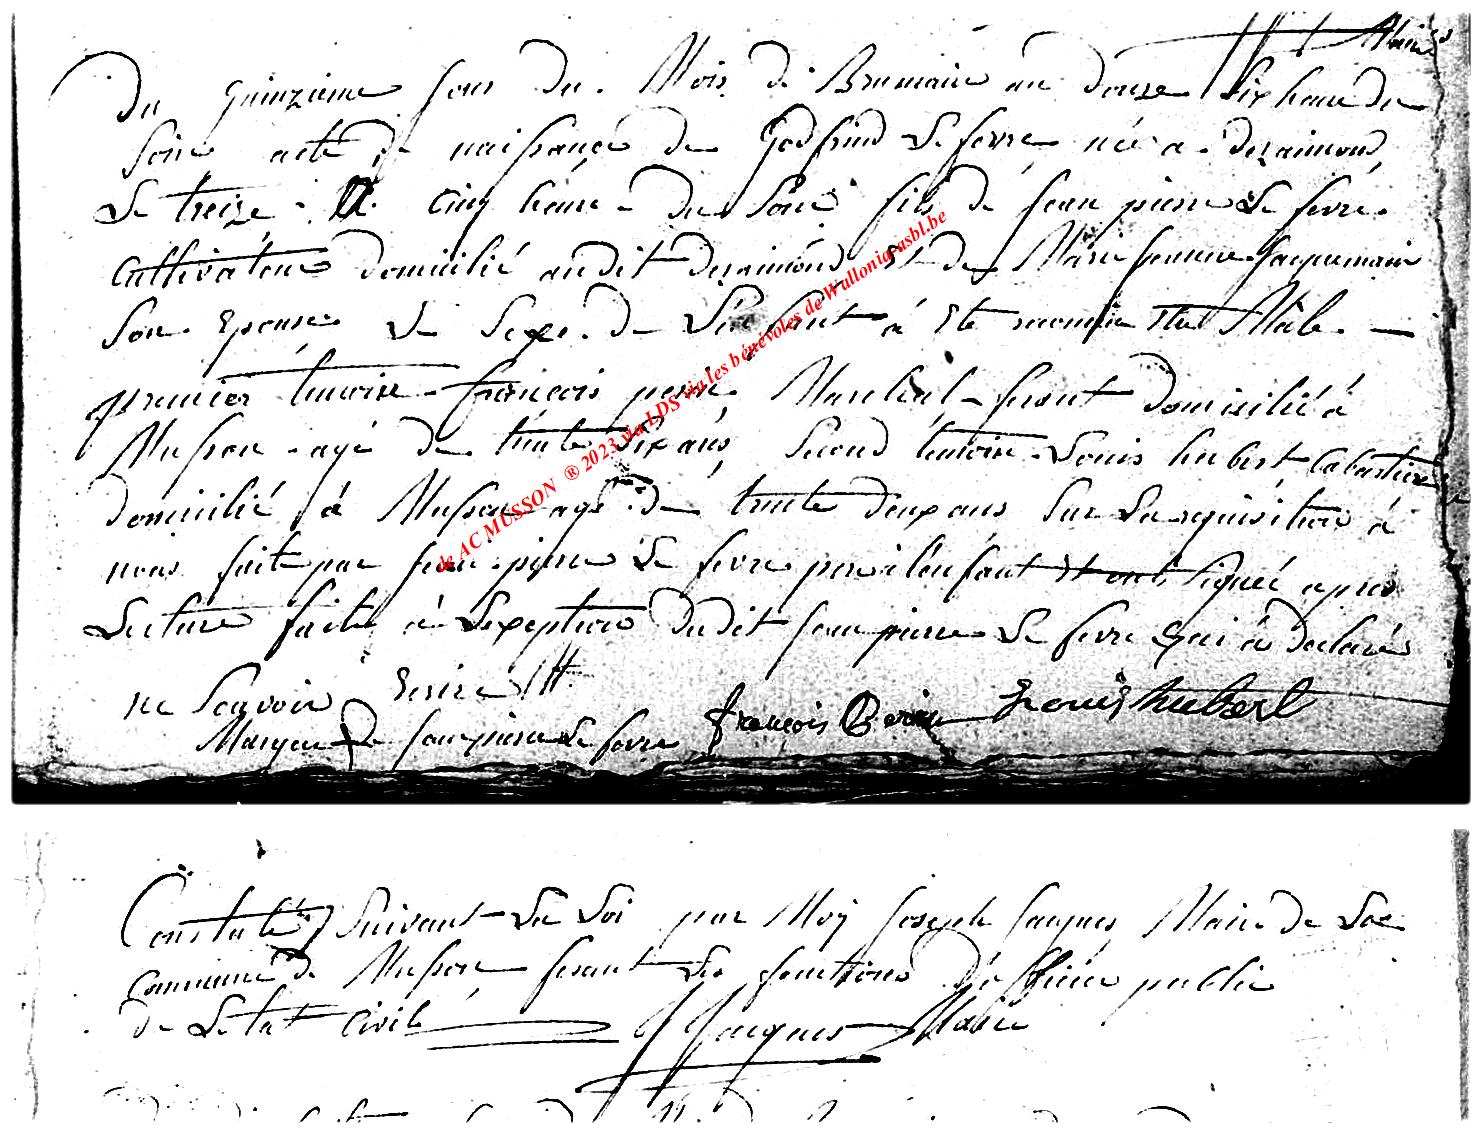 Maire
Du quinzieme Jour du Mois de Brumaire an douze Six heure du
Soire acte de naissance de Godfrind Le fevre née a deraimond
Le treize a cinq heure du Soire fils de Jean pierre Le fevre
Cultivateur domicilié audit deraimond et de Marie Jeanne Jacquemain
Son Epouse Le Sexe de L'enfant à Ete reconnue etre Mâle
premier temoins françois perin Marchal ferant domicilié à
Musson agé de trente Six ans Second temoin Louis hubert Cabartiere
domicilié à Musson agé de trente deux ans Sur La requisition à
nous fait par Jean pierre Le fevre pere de l'enfant et ont Signée apres
Lecture faite à L'exception dudit Jean pierre Le fevre qui à declarés
ne Scavoir Ecrire
Marque de Jean pierre Le fevre françois Perin Louis hubert
de AC MUSSON ® 2023 via LDS via les bénévoles de Wallonia-asbl.be
Constaté Suivant La Loi par Moy Joseph Jacques Maire de La
Commune de Musson fesant Les fonctions d'officier public
de L'etat Civil J Jacques Maire